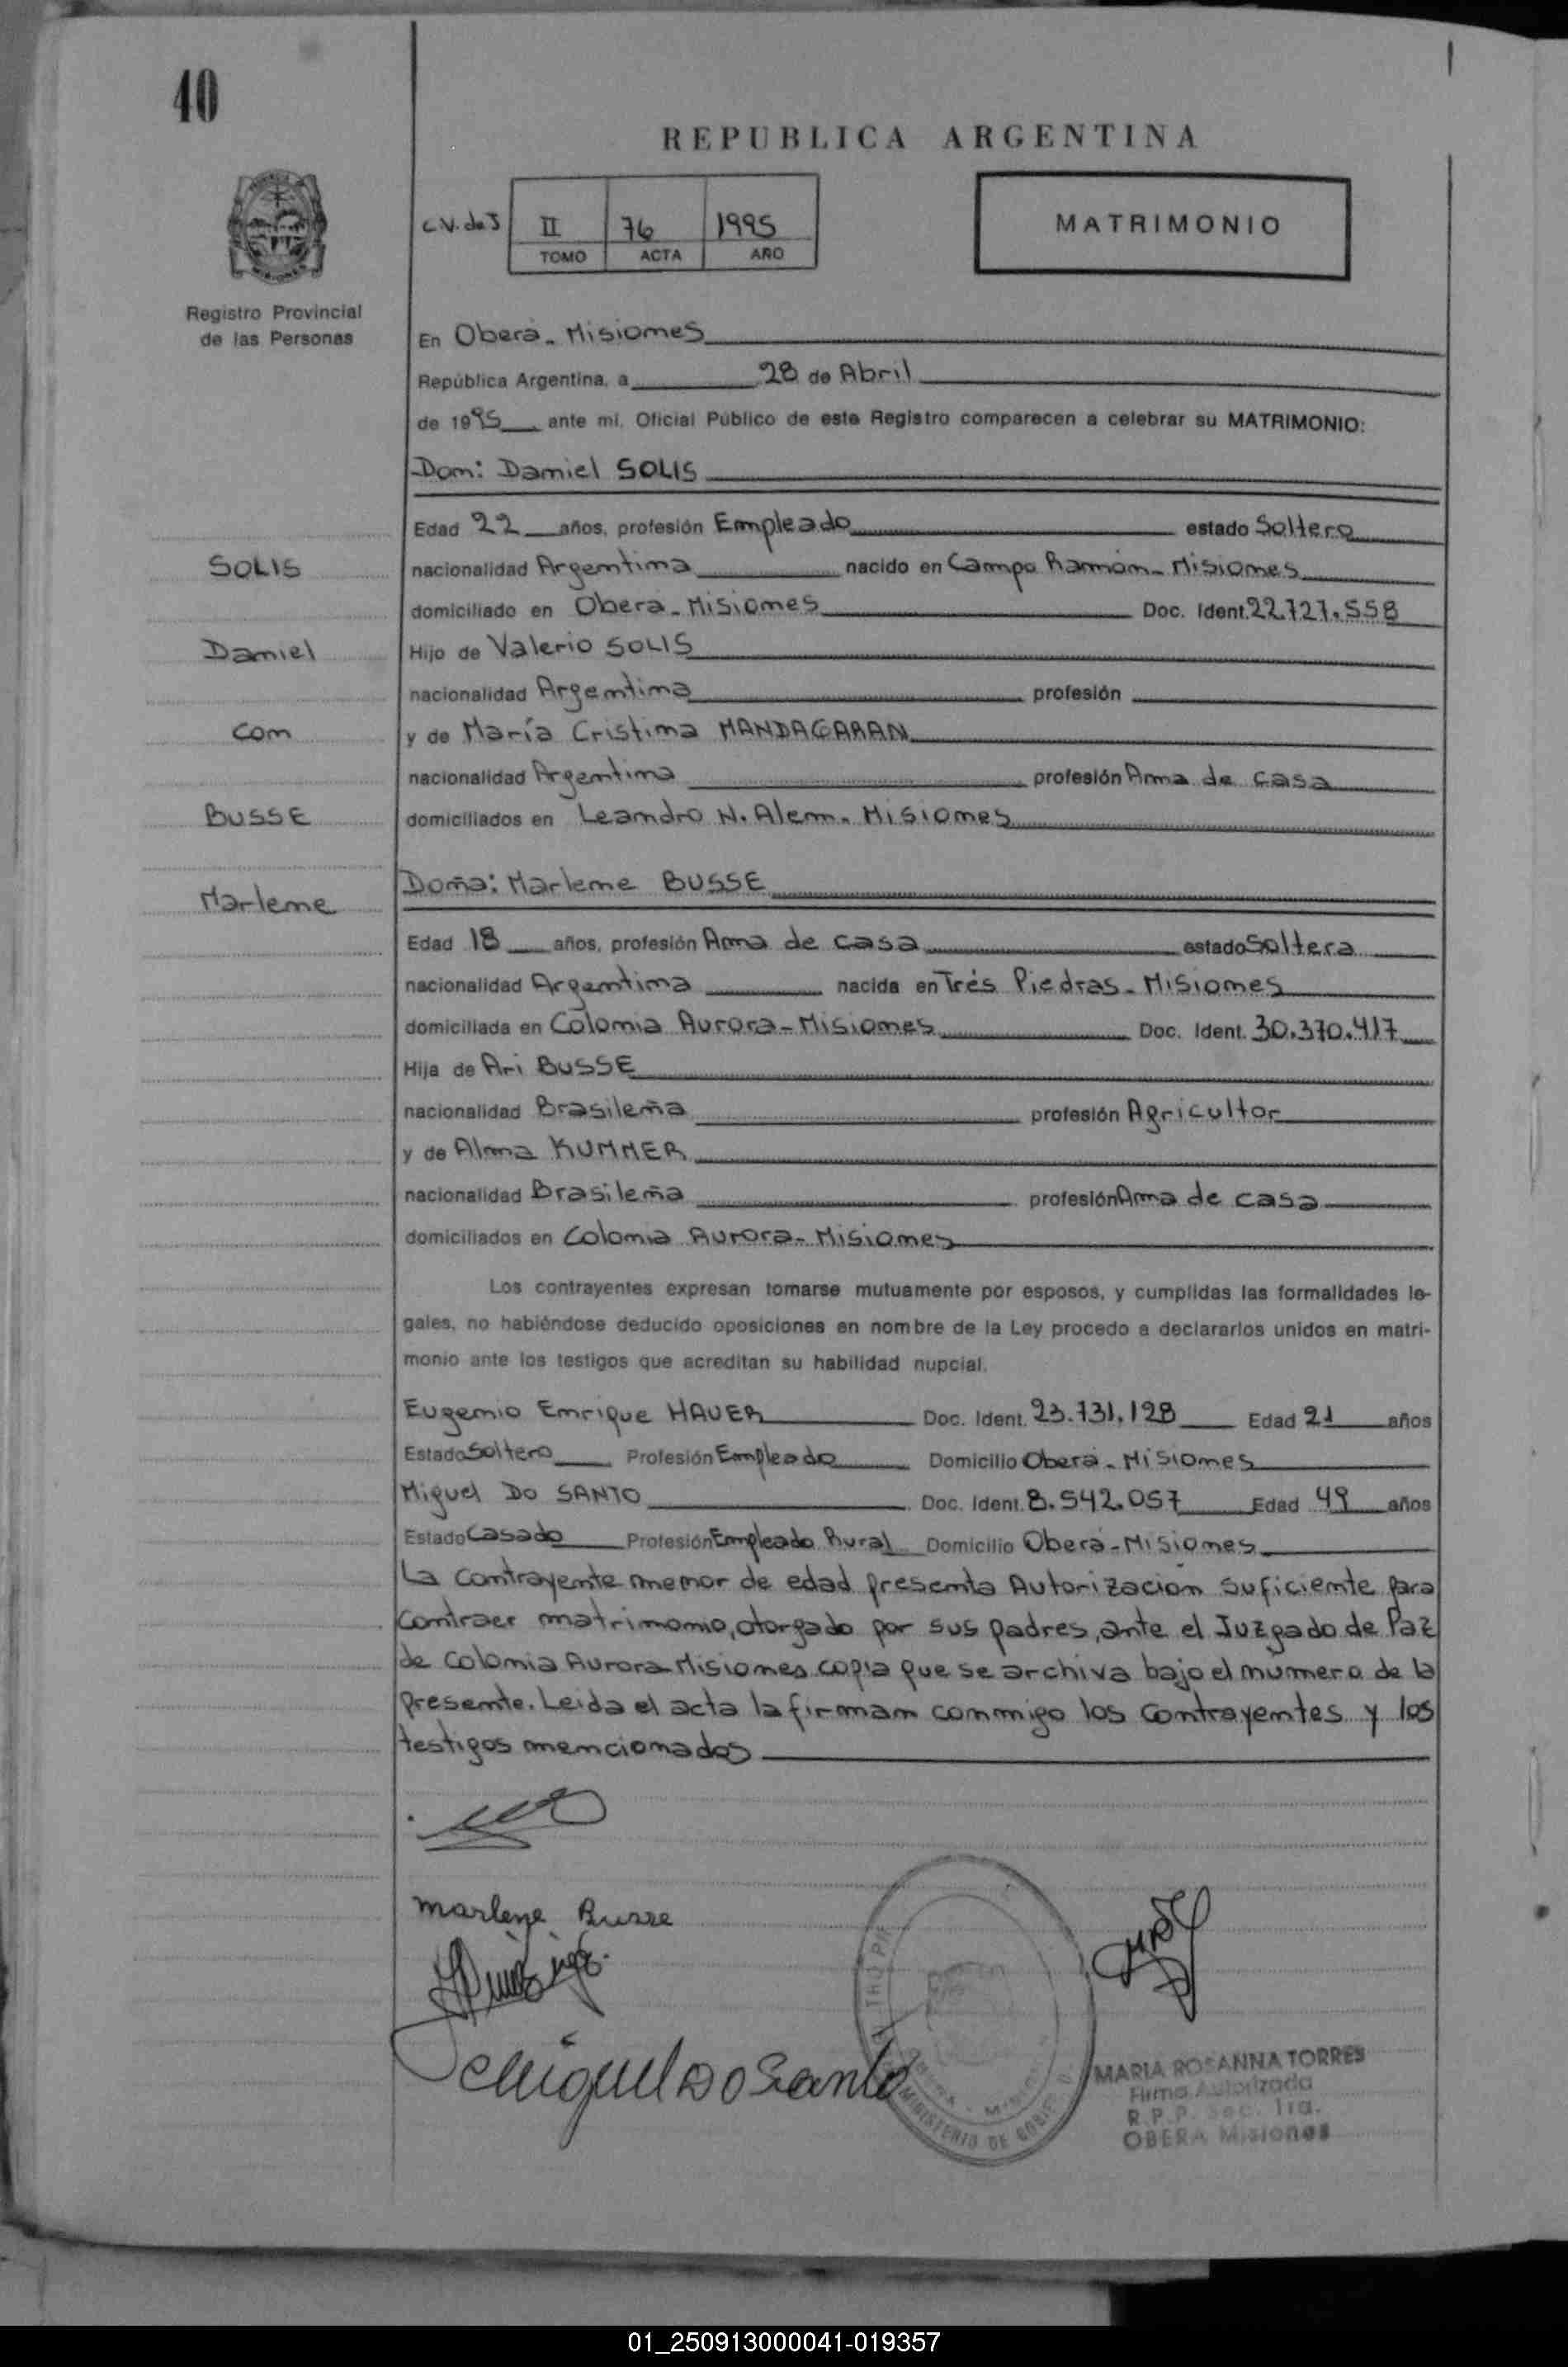 40
REPUBLICA ARGENTINA
II 76 1995
TOMO ACTA AÑO
MATRIMONIO
Registro Provincial
de las Personas
En Oberá - Misiones
República Argentina, a 28 de Abril
de 1995 ante mí, Oficial Público de este Registro comparecen a celebrar su MATRIMONIO:
Don: Daniel SOLIS
Edad 22 años, profesión Empleado estado Soltero
SOLIS
nacionalidad Argentina nacido en Campo Ramón - Misiones
domiciliado en Oberá - Misiones Doc. Ident. 22.727.558
Daniel
Hijo de Valerio SOLIS
nacionalidad Argentina profesión
con
y de María Cristina MANDAGARAN
nacionalidad Argentina profesión Ama de casa
BUSSE
domiciliados en Leandro N. Alem - Misiones
Doña: Marlene BUSSE
Marlene
Edad 18 años, profesión Ama de casa estado Soltera
nacionalidad Argentina nacida en Trés Piedras - Misiones
domiciliada en Colonia Aurora - Misiones Doc. Ident. 30.370.417
Hija de Ari BUSSE
nacionalidad Brasileña profesión Agricultor
y de Alma KUMMER
nacionalidad Brasileña profesión Ama de casa
domiciliados en Colonia Aurora - Misiones
Los contrayentes expresan tomarse mutuamente por esposos, y cumplidas las formalidades le-
gales, no habiéndose deducido oposiciones en nombre de la Ley procedo a declararlos unidos en matri-
monio ante los testigos que acreditan su habilidad nupcial.
Eugenio Enrique HAUER Doc. Ident. 23.731.128 Edad 21 años
Estado Soltero Profesión Empleado Domicilio Oberá - Misiones
Miguel DO SANTO Doc. Ident. 8.542.057 Edad 49 años
Estado Casado Profesión Empleado Rural Domicilio Oberá - Misiones
La contrayente menor de edad presenta Autorización suficiente para
contraer matrimonio, otorgado por sus padres, ante el Juzgado de Paz
de Colonia Aurora Misiones copia que se archiva bajo el número de la
presente. Leida el acta la firman conmigo los contrayentes y los
testigos mencionados
Marlene Busse
Miguel Do Santo
MINISTERIO DE
MARIA ROSANNA TORRES
Firma Autorizada
R.P.P. Sec. 1ra.
OBERA Misiones
01_250913000041-019357